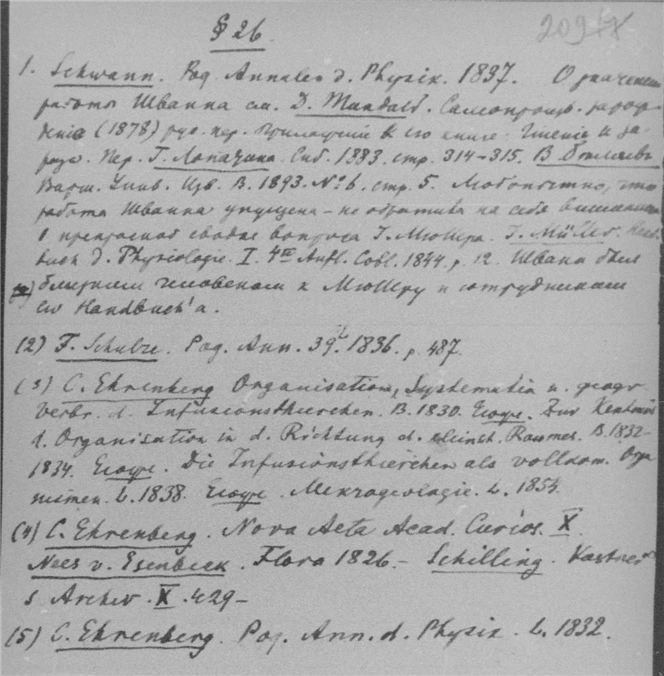 § 26
209
1. Schwann. Pog. Annalen d. Physik. 1837. О значении
работы Шванна см. D. Самопроизв. зарож-
дение (1878) рус. пер. к его книге: Гниение и за-
раза. Пер. Г. Лопатина. Спб. 1883. стр. 314–315. В
Варш. Унив. Изв. В. 1893. № 6. стр. 5. Любопытно, что
работа Шванна упущена – не обратила на себя внимания
в прекрасной сводке вопроса I. Мюллера. J. Müller. Hand-
buch d. Physiologie. I. 4te Aufl. Cobl. 1844. p. 12. Шванн был
близким человеком к Мюллеру и сотрудником
его Handbuch'a.
(2) F. Schulze. Pog. Ann. 39. 1836. p. 487.
(3) C. Ehrenberg Organisation, Systematik u. geogr.
Verbr. d. Infusionsthierchen. B. 1830. Zur Kentniss
d. Organisation in d. Richtung d. kleinst. Raumes. B. 1832–
1834. Die Infusionsthierchen als vollkom. Orga-
nismen. L. 1838. Mikrogeologie. L. 1854.
(4) C. Ehrenberg. Nova Acta Acad. Curios. X.
Nees v. Esenbeck. Flora 1826.– Schilling. Kastner
s Archiv. X. 429–
(5) C. Ehrenberg. Pog. Ann. d. Physik. L. 1832.